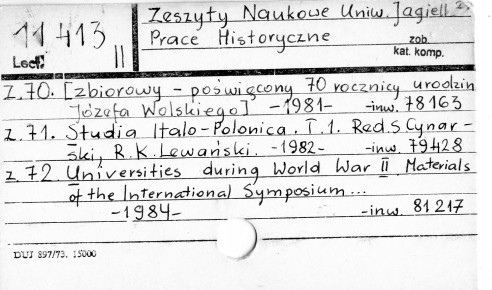 Zeszyty Naukowe Uniw. Jagiell.
11413 II
Prace Historyczne
zob
kat. komp.
Z.70. [zbiorowy - poświęcony 70 rocznicy urodzin
Józefa Wolskiego] -1981- -inw. 78163
z.71. Studia Italo-Polonica. T.1. Red. S. Cynar-
ski, R.K. Lewański. -1982- -inw. 79428
z.72. Universities during World War II Materials
of the International Symposium...
-1984- -inw. 81217
DUJ 897/73. 15000